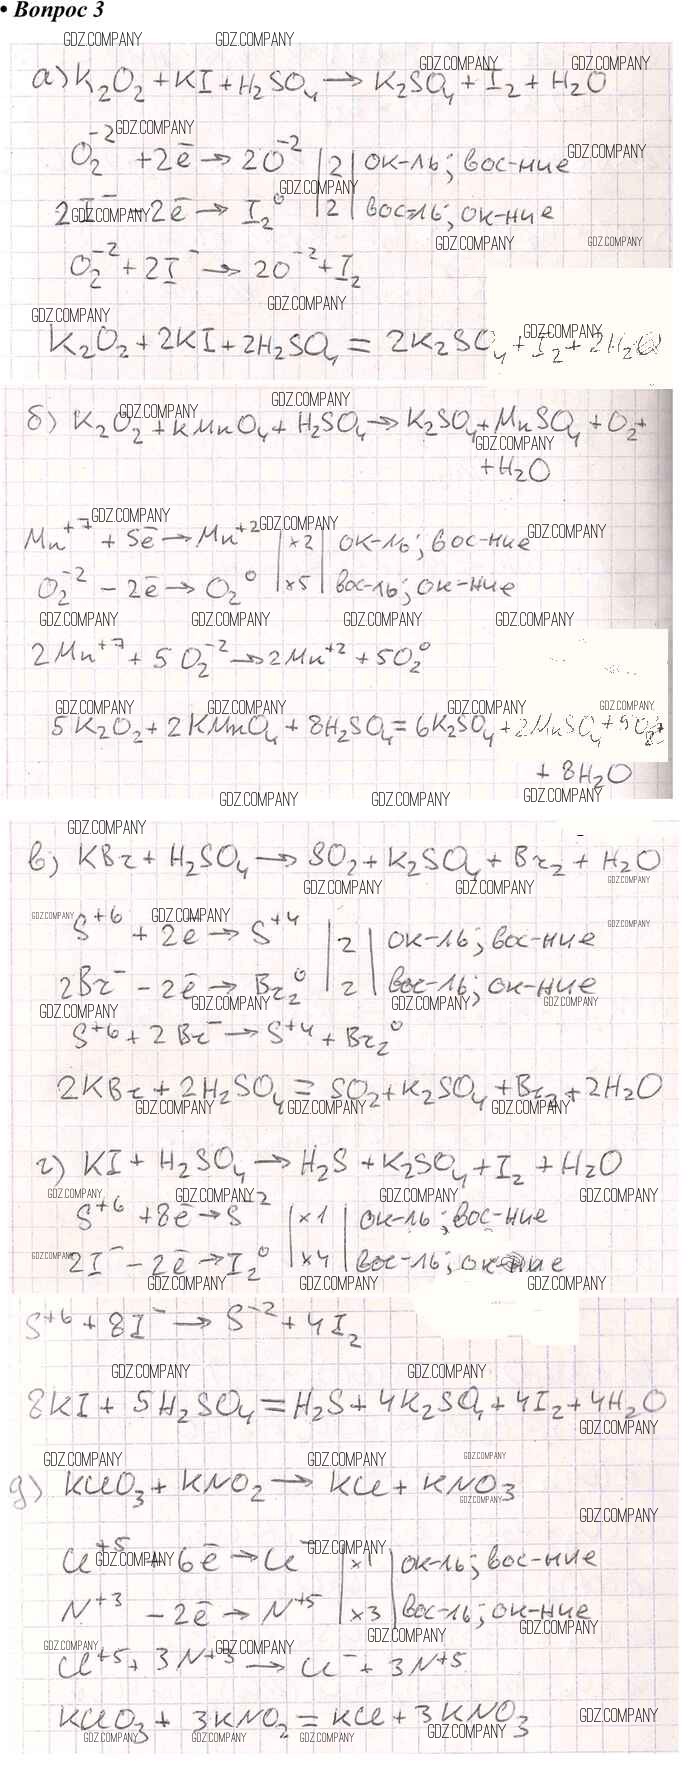 • Вопрос 3
а) K₂O₂ + KI + H₂SO₄ → K₂SO₄ + I₂ + H₂O
O₂⁻² + 2ē → 2O⁻² | 2 | ок-ль; вос-ние
2I⁻ - 2ē → I₂⁰ | 2 | вос-ль; ок-ние
O₂⁻² + 2I⁻ → 2O⁻² + I₂
K₂O₂ + 2KI + 2H₂SO₄ = 2K₂SO₄ + I₂ + 2H₂O
б) K₂O₂ + KMnO₄ + H₂SO₄ → K₂SO₄ + MnSO₄ + O₂ +
+ H₂O
Mn⁺⁷ + 5ē → Mn⁺² | x2 | ок-ль; вос-ние
O₂⁻² - 2ē → O₂⁰ | x5 | вос-ль; ок-ние
2Mn⁺⁷ + 5O₂⁻² → 2Mn⁺² + 5O₂⁰
5K₂O₂ + 2KMnO₄ + 8H₂SO₄ = 6K₂SO₄ + 2MnSO₄ + 5O₂ +
+ 8H₂O
в) KBr + H₂SO₄ → SO₂ + K₂SO₄ + Br₂ + H₂O
S⁺⁶ + 2ē → S⁺⁴ | 2 | ок-ль; вос-ние
2Br⁻ - 2ē → Br₂⁰ | 2 | вос-ль; ок-ние
S⁺⁶ + 2Br⁻ → S⁺⁴ + Br₂⁰
2KBr + 2H₂SO₄ = SO₂ + K₂SO₄ + Br₂ + 2H₂O
г) KI + H₂SO₄ → H₂S + K₂SO₄ + I₂ + H₂O
S⁺⁶ + 8ē → S⁻² | x1 | ок-ль; вос-ние
2I⁻ - 2ē → I₂⁰ | x4 | вос-ль; ок-ние
S⁺⁶ + 8I⁻ → S⁻² + 4I₂
8KI + 5H₂SO₄ = H₂S + 4K₂SO₄ + 4I₂ + 4H₂O
д) KClO₃ + KNO₂ → KCl + KNO₃
Cl⁺⁵ + 6ē → Cl⁻ | x1 | ок-ль; вос-ние
N⁺³ - 2ē → N⁺⁵ | x3 | вос-ль; ок-ние
Cl⁺⁵ + 3N⁺³ → Cl⁻ + 3N⁺⁵
KClO₃ + 3KNO₂ = KCl + 3KNO₃
GDZ.COMPANY